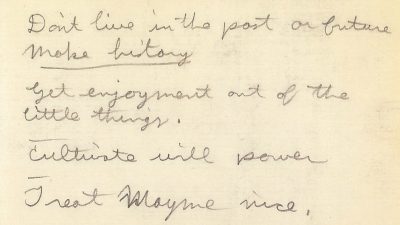 Don't live in the past or future
Make history
Get enjoyment out of the
little things.
Cultivate will power
Treat Mayme nice.